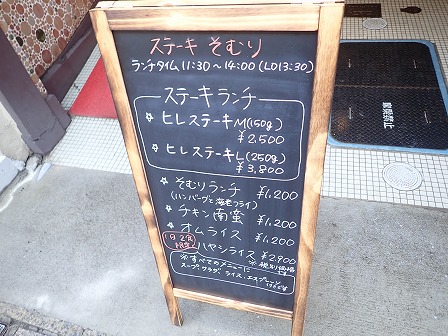 ステーキ そむり
ランチタイム 11:30～14:00 (LO13:30)
ステーキランチ
☆ ヒレステーキM(150g)
¥2,500
☆ ヒレステーキL(250g)
¥3,800
☆ そむりランチ ¥1,200
(ハンバーグと海老フライ)
☆ チキン南蛮 ¥1,200
☆ オムライス ¥1,200
1日2食 ハヤシライス ¥2900
限定
※すべてのメニューに
スープ サラダ ライス、エスプレッソ
駐禁止